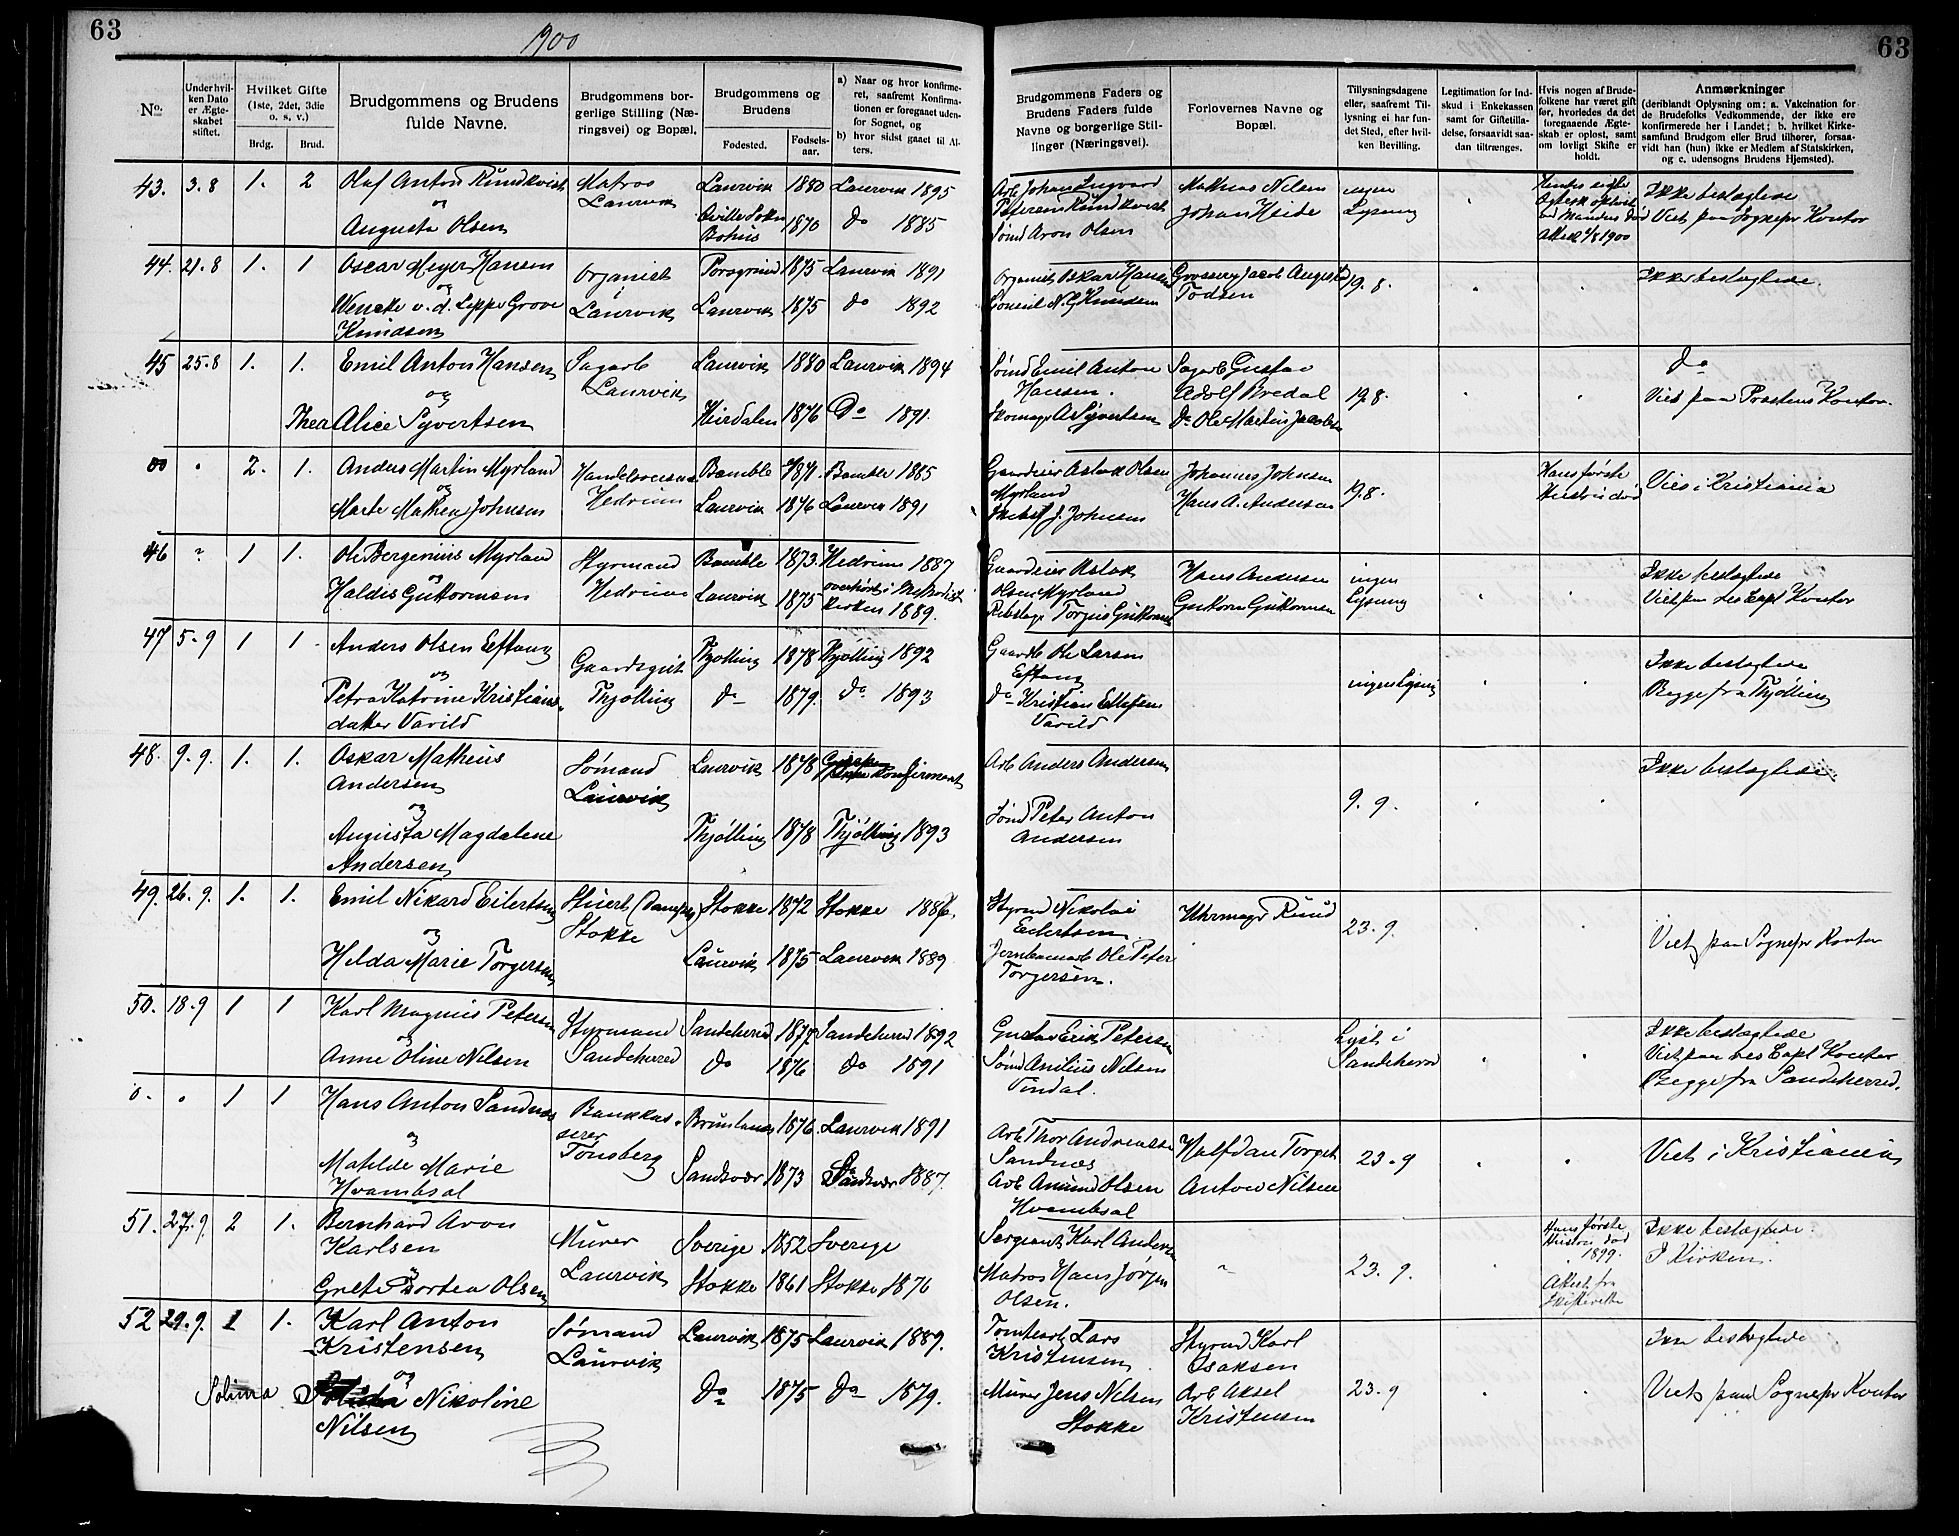 63
1900
63
No.
Under hvilken Dato er Ægteskabet stiftet.
Hvilket Gifte (1ste, 2det, 3die o. s. v.)
Brdg.
Brud.
Brudgommens og Brudens fulde Navne.
Brudgommens borgerlige Stilling (Næringsvei) og Bopæl.
Brudgommens og Brudens
Fødested.
Fødselsaar.
a) Naar og hvor konfirmeret, saafremt Konfirmationen er foregaaet udenfor Sognet, og
b) hvor sidst gaaet til Alters.
Brudgommens Faders og Brudens Faders fulde Navne og borgerlige Stillinger (Næringsvei).
Forlovernes Navne og Bopæl.
Tillysningsdagene eller, saafremt Tillysning ei har fundet Sted, efter hvilken Bevilling.
Legitimation for Indskud i Enkekassen samt for Giftetilladelse, forsaavidt saadan tiltrænges.
Hvis nogen af Brudefolkene har været gift før, hvorledes da det foregaaende Ægteskab er opløst, samt om lovligt Skifte er holdt.
Anmærkninger
(deriblandt Oplysning om: a. Vakcination for de Brudefolks Vedkommende, der ikke ere konfirmerede her i Landet; b. hvilket Kirkesamfund Brudgom eller Brud tilhører, forsaavidt han (hun) ikke er Medlem af Statskirken, og c. udensogns Brudens Hjemsted).
43. 3.8 1. 2 Olaf Anton Rundkvist Matros Laurvik 1880 Laurvik 1895
og Laurvik
Augusta Olsen Bohus 1870 do 1885
Arb Johan Ingvard Mathias Nilsen ingen Ikke beslægtede
Petersen Rundkvist Johan Heide Lysning Viet paa Sognepr Kontor
Sømd Aron Olsen 1900
44. 21.8 1. 1 Oscar Meyer Hansen Organist Porsgrund 1875 Laurvik 1891
og
Wencke v. d. Lippe Grove Laurvik Laurvik 1875 do 1892
Knudsen
Organist Oskar Hansen Grosserer Jacob August 19.8. Ikke beslægtede.
Consul N. G. Knudsen Todsen
45 25.8 1. 1. Emil Anton Hansen Sagarb Laurvik 1880 Laurvik 1894
og Laurvik
Thea Alice Syvertsen 1876 Do 1891.
Sømd Emil Anton Sagarb Gustav Do
Hansen. Adolf Bredal 19.8. Viet paa Prestens Kontor.
Skomager A Syvertsen Do Ole Martin Jacobsen
00 2. 1. Anders Martin Myrland Bamble 1871. Bamble 1885
og Hedrum
Marte Mathea Johnsen Laurvik 1876 Laurvik 1891
Gaardeier Aslak Olsen Johannes Johnsen 19.8. Hans første Vies i Kristiania
Myrland Hans A. Andersen Hustru død
J. Johnsen
46 1 1. Ole Bergenius Myrland Styrmand Bamble 1873. Hedrum 1887
og
Haldis Guttormsen Hedrum Laurvik 1875 overhørt i Methodist
Kirken 1889.
Gaardeier Aslak Hans Andersen ingen Ikke beslægtede
Olsen Myrland Guttorm Guttormsen Lysning Viet paa Kontor
Torgius Guttormsen
47 5.9 1 1. Anders Olsen Eftang Gaardsgut Thjølling 1878 Thjølling 1892
og
Petra Katrine Kristians- Thjølling do 1879. do 1893
datter Varild
Gaardb Ole Larsen Ikke beslægtede
Eftang ingen Lysning Begge fra Thjølling
do Kristian Ellefsen
Varild
48. 9.9. 1. 1. Oskar Matheus Sømand Laurvik 1878 konfirmeret
Andersen Laurvik
og
Augusta Magdalene Thjølling 1878 Thjølling 1893
Andersen
Arb Anders Andersen 9.9. Ikke beslægtede
Sømd Peter Anton
Andersen
49. 26.9. 1. 1. Emil Nikard Eilertsen Stuert Stokke 1872 Stokke 1886.
og Stokke
Hilda Marie Torgersen Laurvik 1875 Laurvik 1889
Styrmd Nikolai Uhrmager Ruud 23.9. Viet paa Sognepr Kontor
Eilertsen
Jernbanearb Ole Peter
Torgersen.
50. 18.9 1 1 Karl Magnus Petersen Styrmand Sandeherred 1877 Sandeherred 1892
og
Anne Oline Nilsen Sandeherred do 1876 do 1891
Gustav Erik Petersen Lyst i Ikke beslægtede
Sømd Anilius Nilsen Sandeherred Viet paa res Capl Kontor
Vindal. Begge fra Sandeherred.
0. 1 1 Hans Anton Sandnæs Bankkas- Brunlanæs 1876. Laurvik 1891
og serer
Matilde Marie Tønsberg Sandsvær 1873 Sandsvær 1887.
Hvambsal
Arb Thor Andreassen Halfdan 23.9 Viet i Kristiania
Sandnæs Anton Nilsen
Arb Amund Olsen
Hvambsal
51. 27.9. 2 1. Bernhard Aron Murer Sverige 1852 Sverige
Karlsen
og
Grete Dortea Olsen Laurvik Stokke 1861 Stokke 1876
Sergeant Karl Andersen 23.9. Hans første Ikke beslægtede.
Matros Hans Jørgen Hustru død I Kirken.
Olsen. 1899.
Attest fra
Skifteretten
52 29.9. 1 1. Karl Anton Sømand Laurvik 1875 Laurvik 1889.
Kristensen Laurvik
og
Solima Nikoline Do 1875 Do 1879.
Nilsen
Tomtearb Lars Styrmd Karl Ikke beslægtede
Kristensen Isaksen
Murer Jens Nilsen Arb Aksel 23.9 Viet paa Sognepr Kontor
Stokke Kristensen